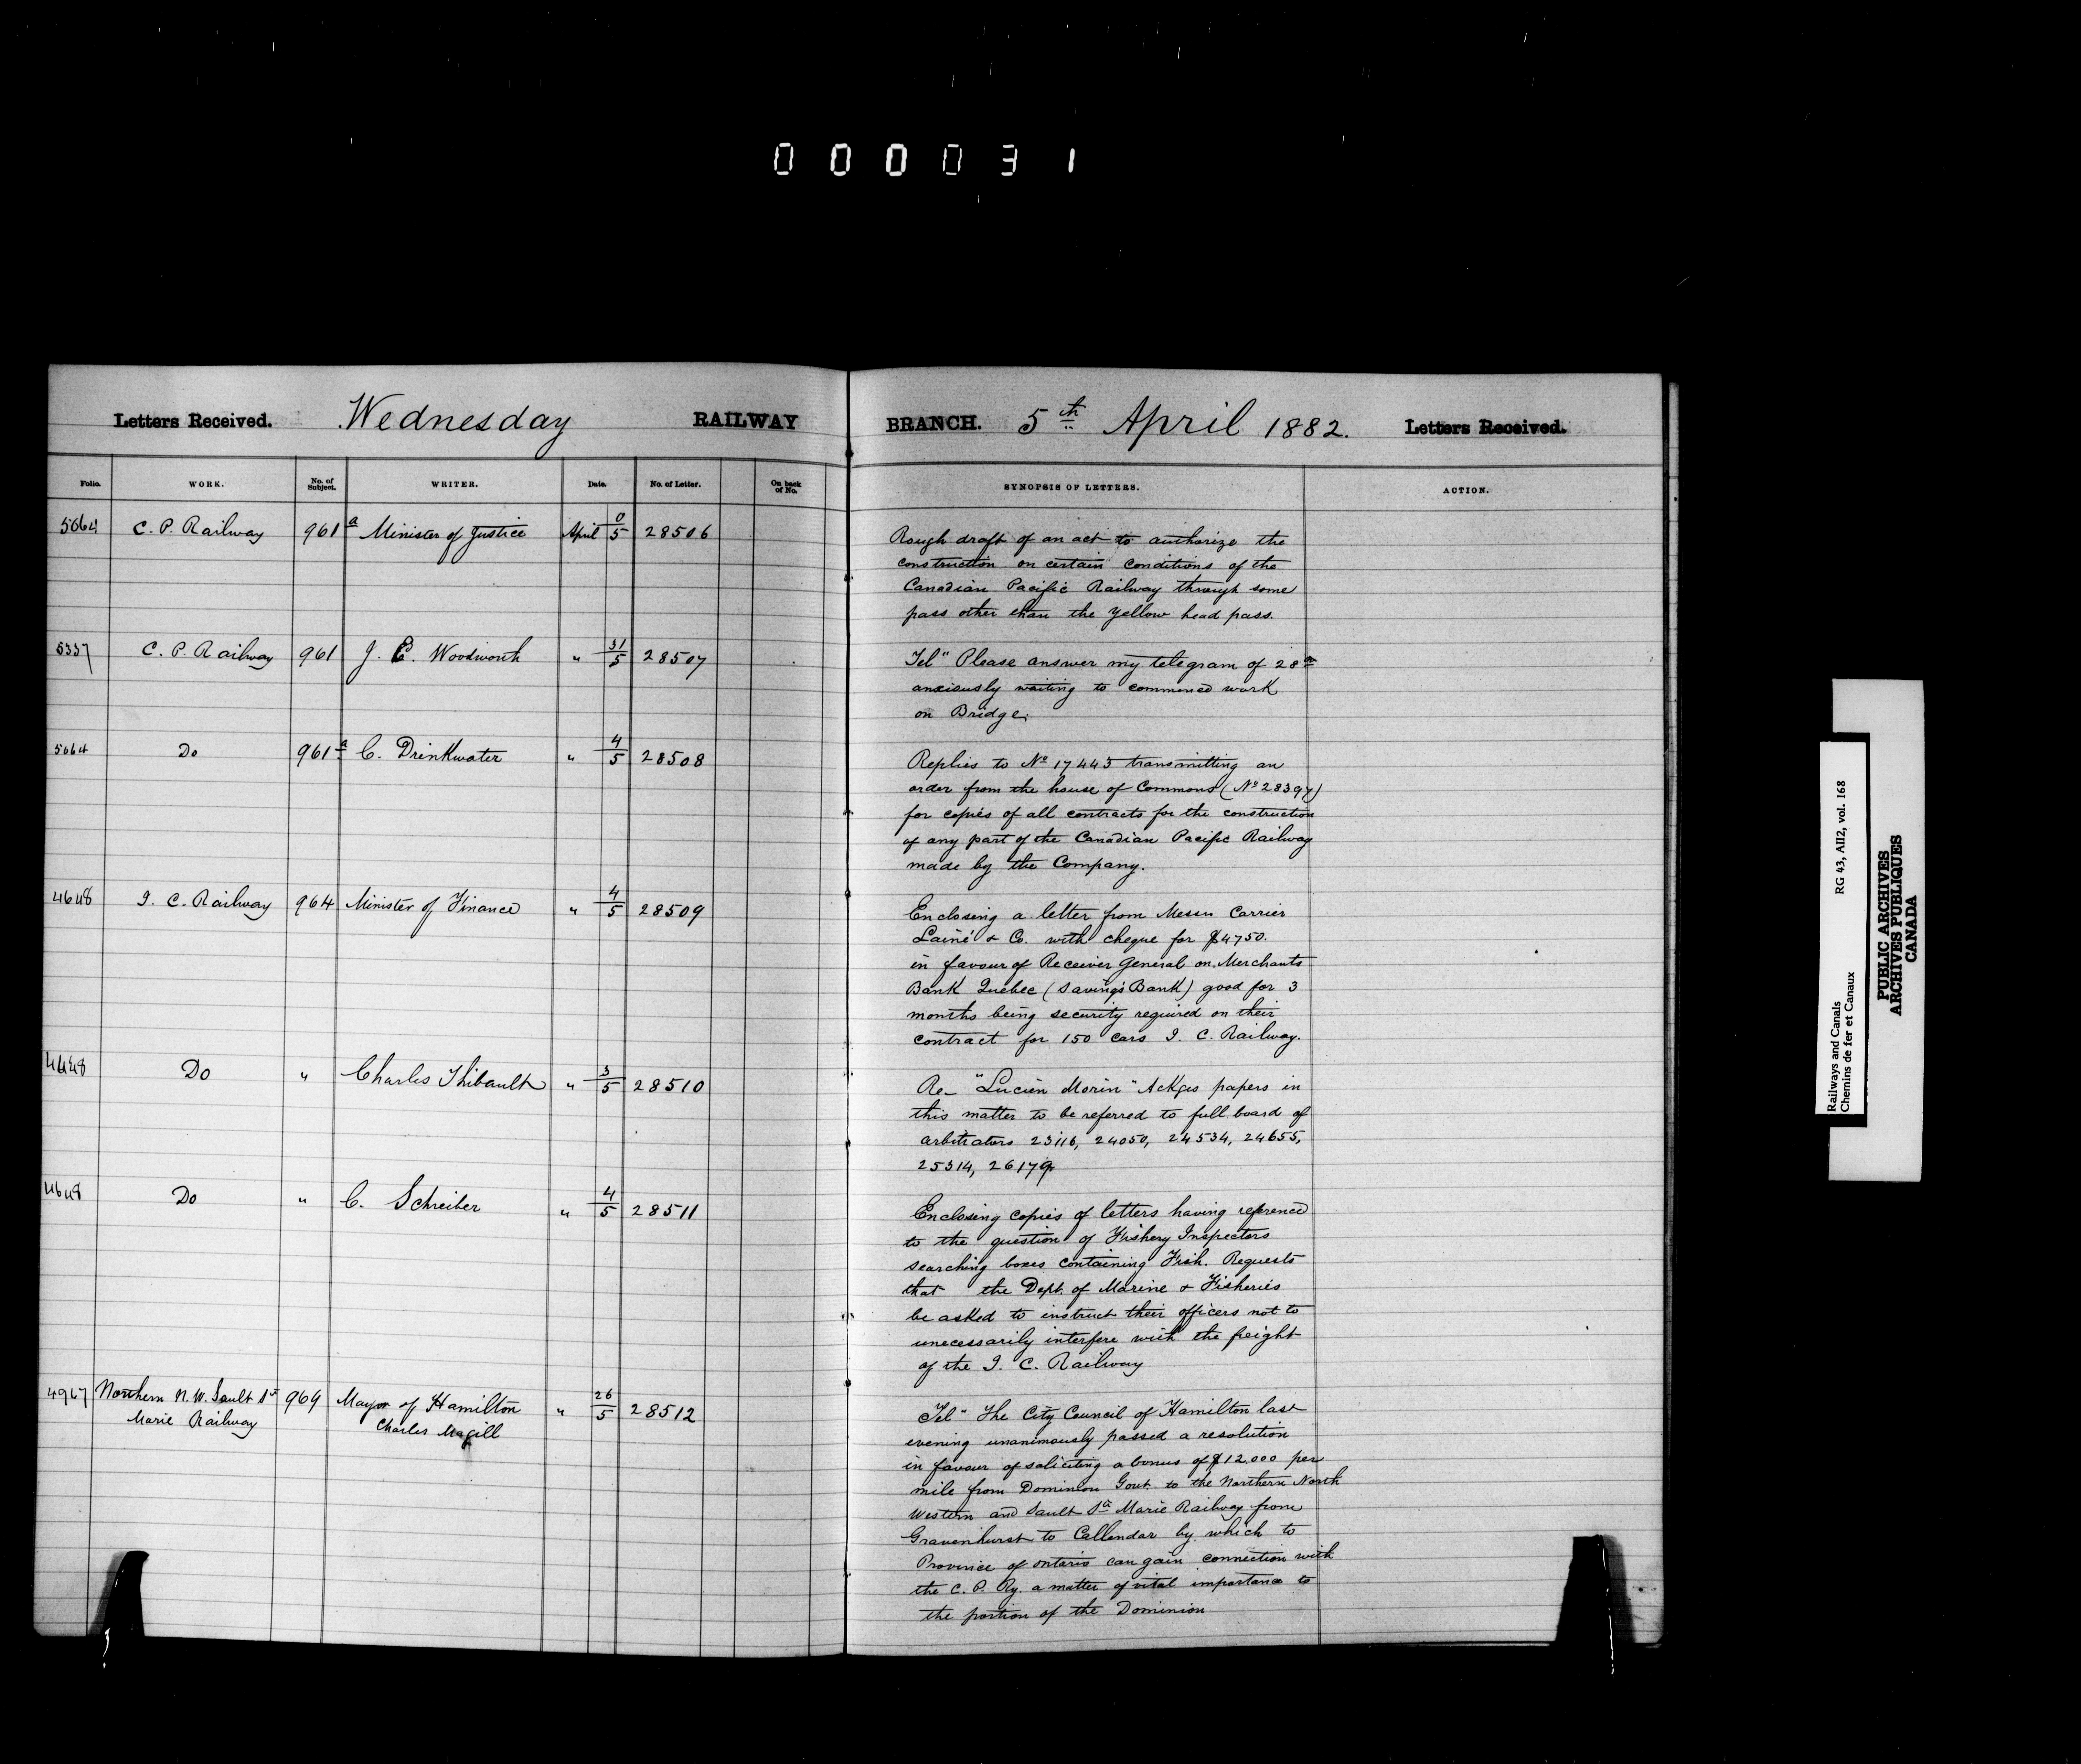 000031
Letters Received. Wednesday RAILWAY BRANCH. 5th April 1882. Letters Received.
Folio. WORK. No. of Subject. WRITER. Date. No. of Letter. On back of No. SYNOPSIS OF LETTERS. ACTION.
5064 C. P. Railway 961a Minister of Justice April 0/5 28506
Rough draft of an act to authorize the
construction on certain conditions of the
Canadian Pacific Railway through some
pass other than the Yellow head pass.
5337 C. P. Railway 961 J. E. Woodworth " 31/5 28507
Tel" Please answer my telegram of 28th
anxiously waiting to commence work
on Bridge.
5064 Do 961a C. Drinkwater " 4/5 28508
Replies to No 17443 transmitting an
order from the house of Commons (No 28397)
for copies of all contracts for the construction
of any part of the Canadian Pacific Railway
made by the Company.
4648 I. C. Railway 964 Minister of Finance " 4/5 28509
Enclosing a letter from Messrs Carrier
Lainé & Co. with cheque for $4750.
in favour of Receiver General on Merchants
Bank Quebec (Saving's Bank) good for 3
months being security required on their
contract for 150 cars I. C. Railway.
4648 Do " Charles Thibault " 3/5 28510
Re- "Lucien Morin" Ackges papers in
this matter to be referred to full board of
arbitrators 23116, 24050, 24534, 24655,
25314, 26179
4648 Do " C. Schreiber " 4/5 28511
Enclosing copies of letters having reference
to the question of Fishery Inspectors
searching boxes containing Fish. Requests
that the Dept. of Marine & Fisheries
be asked to instruct their officers not to
unecessarily interfere with the freight
of the I. C. Railway
4967 Northern N. W. Sault St 969 Mayor of Hamilton " 26/5 28512
Marie Railway Charles Magill
Tel" The City Council of Hamilton last
evening unanimously passed a resolution
in favour of soliciting a bonus of $12.000 per
mile from Dominion Govt. to the Northern North
Western and Sault St Marie Railway from
Gravenhurst to Callendar by which to
Province of Ontario can gain connection with
the C. P. Ry. a matter of vital importance to
the portion of the Dominion
Railways and Canals RG 43, AII2, vol. 168
Chemins de fer et Canaux
PUBLIC ARCHIVES
ARCHIVES PUBLIQUES
CANADA